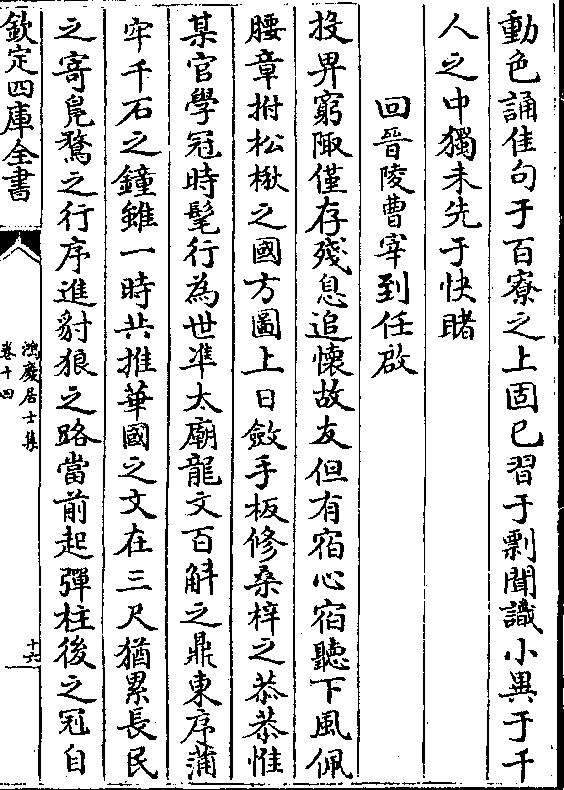 動色誦佳句于百寮之上固已習于剽聞識小異于千
人之中獨未先于快睹
回晉陵曹宰到任啟
投畀窮陬僅存殘息追懷故友但有宿心宿聽下風佩
腰章拊松楸之國方圖上日斂手板修桑梓之恭恭惟
某官學冠時髦行為世準太廟龍文百斛之鼎東序蒲
牢千石之鐘雖一時共推華國之文在三尺猶累長民
之寄鳧鶩之行序進豺狼之路當前起彈柱後之冠自
欽定四庫全書
鴻慶居士集
卷十四
十六